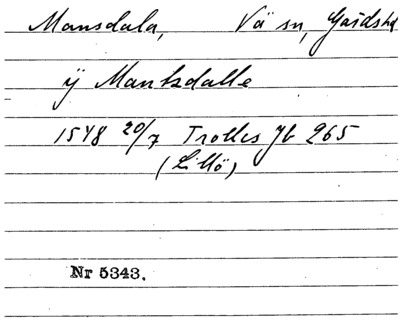 Mansdala, Vä sn, Gärds hd
ÿ Mantzdalle
1548 20/7 Trolles Jb 265
(Lillö)
Nr 5343.